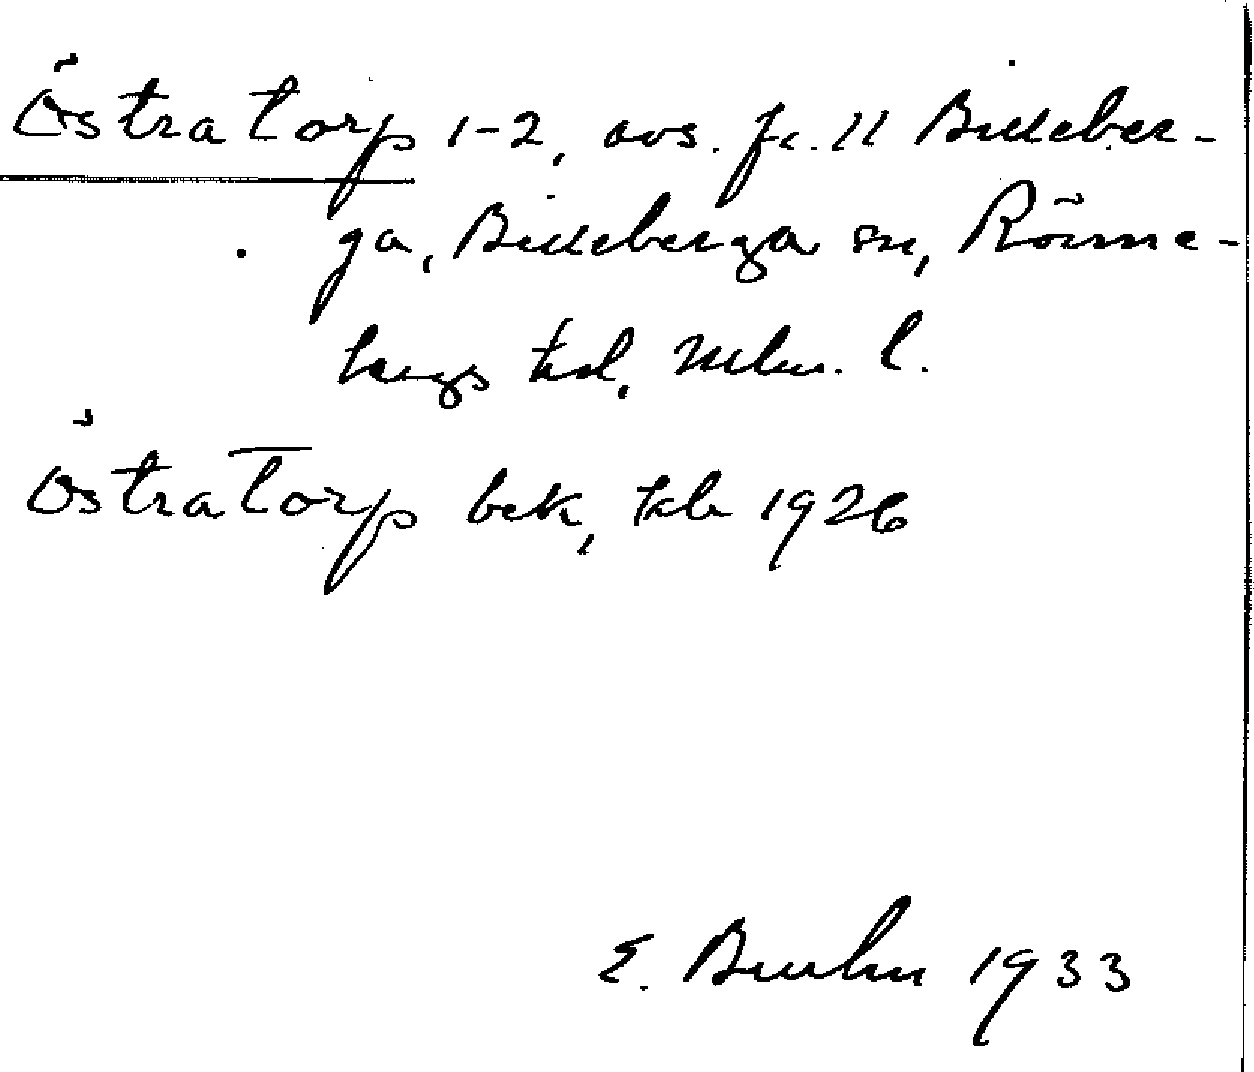 Östratorp 1-2, avs. fr. 11 Billeber-
ga, Billeberga sn, Rönne-
bergs hd, Mlm. l.
Östratorp bek, kb 1926
E. Bruhn 1933